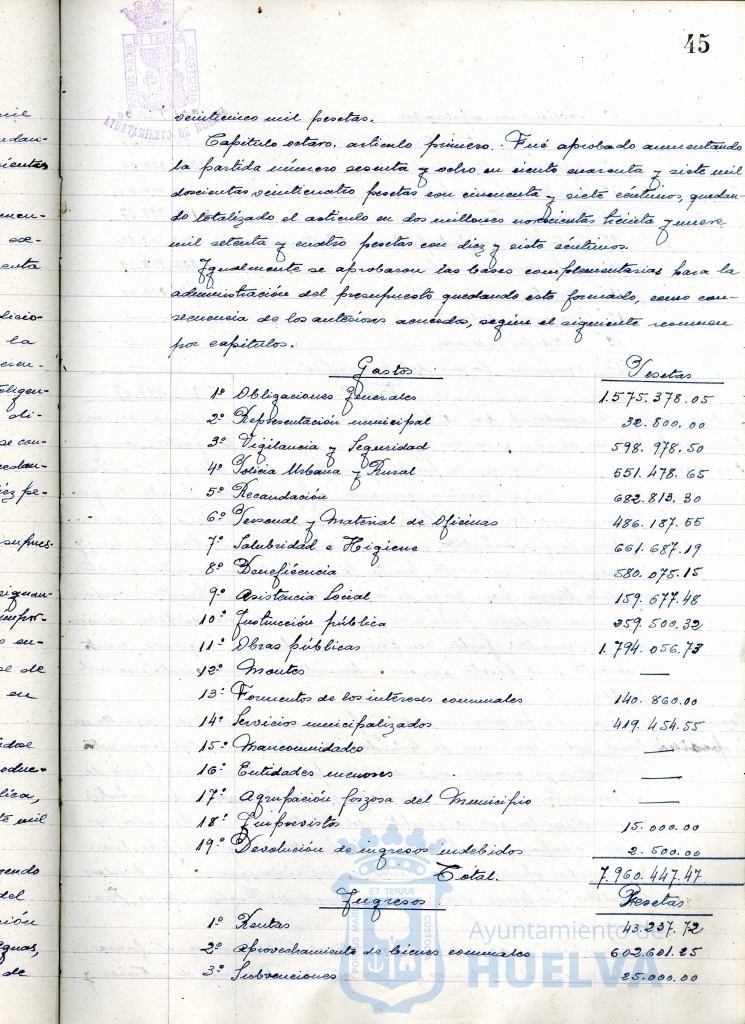 45
veinticinco mil pesetas.
Capítulo octavo, artículo primero. Fué aprobado aumentando
la partida número sesenta y ocho en ciento cuarenta y siete mil
doscientas veinticuatro pesetas con cincuenta y siete céntimos, quedan-
do totalizado el artículo en dos millones novecientas treinta y nueve
mil setenta y cuatro pesetas con diez y siete céntimos.
Igualmente se aprobaron las bases complementarias para la
administración del presupuesto quedando este formado, como con-
secuencia de los anteriores acuerdos, según el siguiente resumen
por capítulos.
Gastos Pesetas
1º Obligaciones generales 1.575.378.05
2º Representación municipal 32.800.00
3º Vigilancia y Seguridad 598.978.50
4º Policía Urbana y Rural 551.478.65
5º Recaudación 682.813.30
6º Personal y Material de Oficinas 486.187.55
7º Salubridad e Higiene 661.687.19
8º Beneficencia 580.075.15
9º Asistencia Social 159.677.48
10º Instrucción pública 259.500.32
11º Obras públicas 1.794.056.73
12º Montes —
13º Fomentos de los intereses comunales 140.860.00
14º Servicios municipalizados 419.454.55
15º Mancomunidades —
16º Entidades menores —
17º Agrupación forzosa del Municipio —
18º Imprevistos 15.000.00
19º Devolución de ingresos indebidos 2.500.00
Total. 7.960.447.47
Ingresos Pesetas
1º Rentas 43.237.72
2º Aprovechamiento de bienes comunales 602.601.25
3º Subvenciones 25.000.00
AYUNTAMIENTO DE HUELVA
Ayuntamiento de
HUELVA